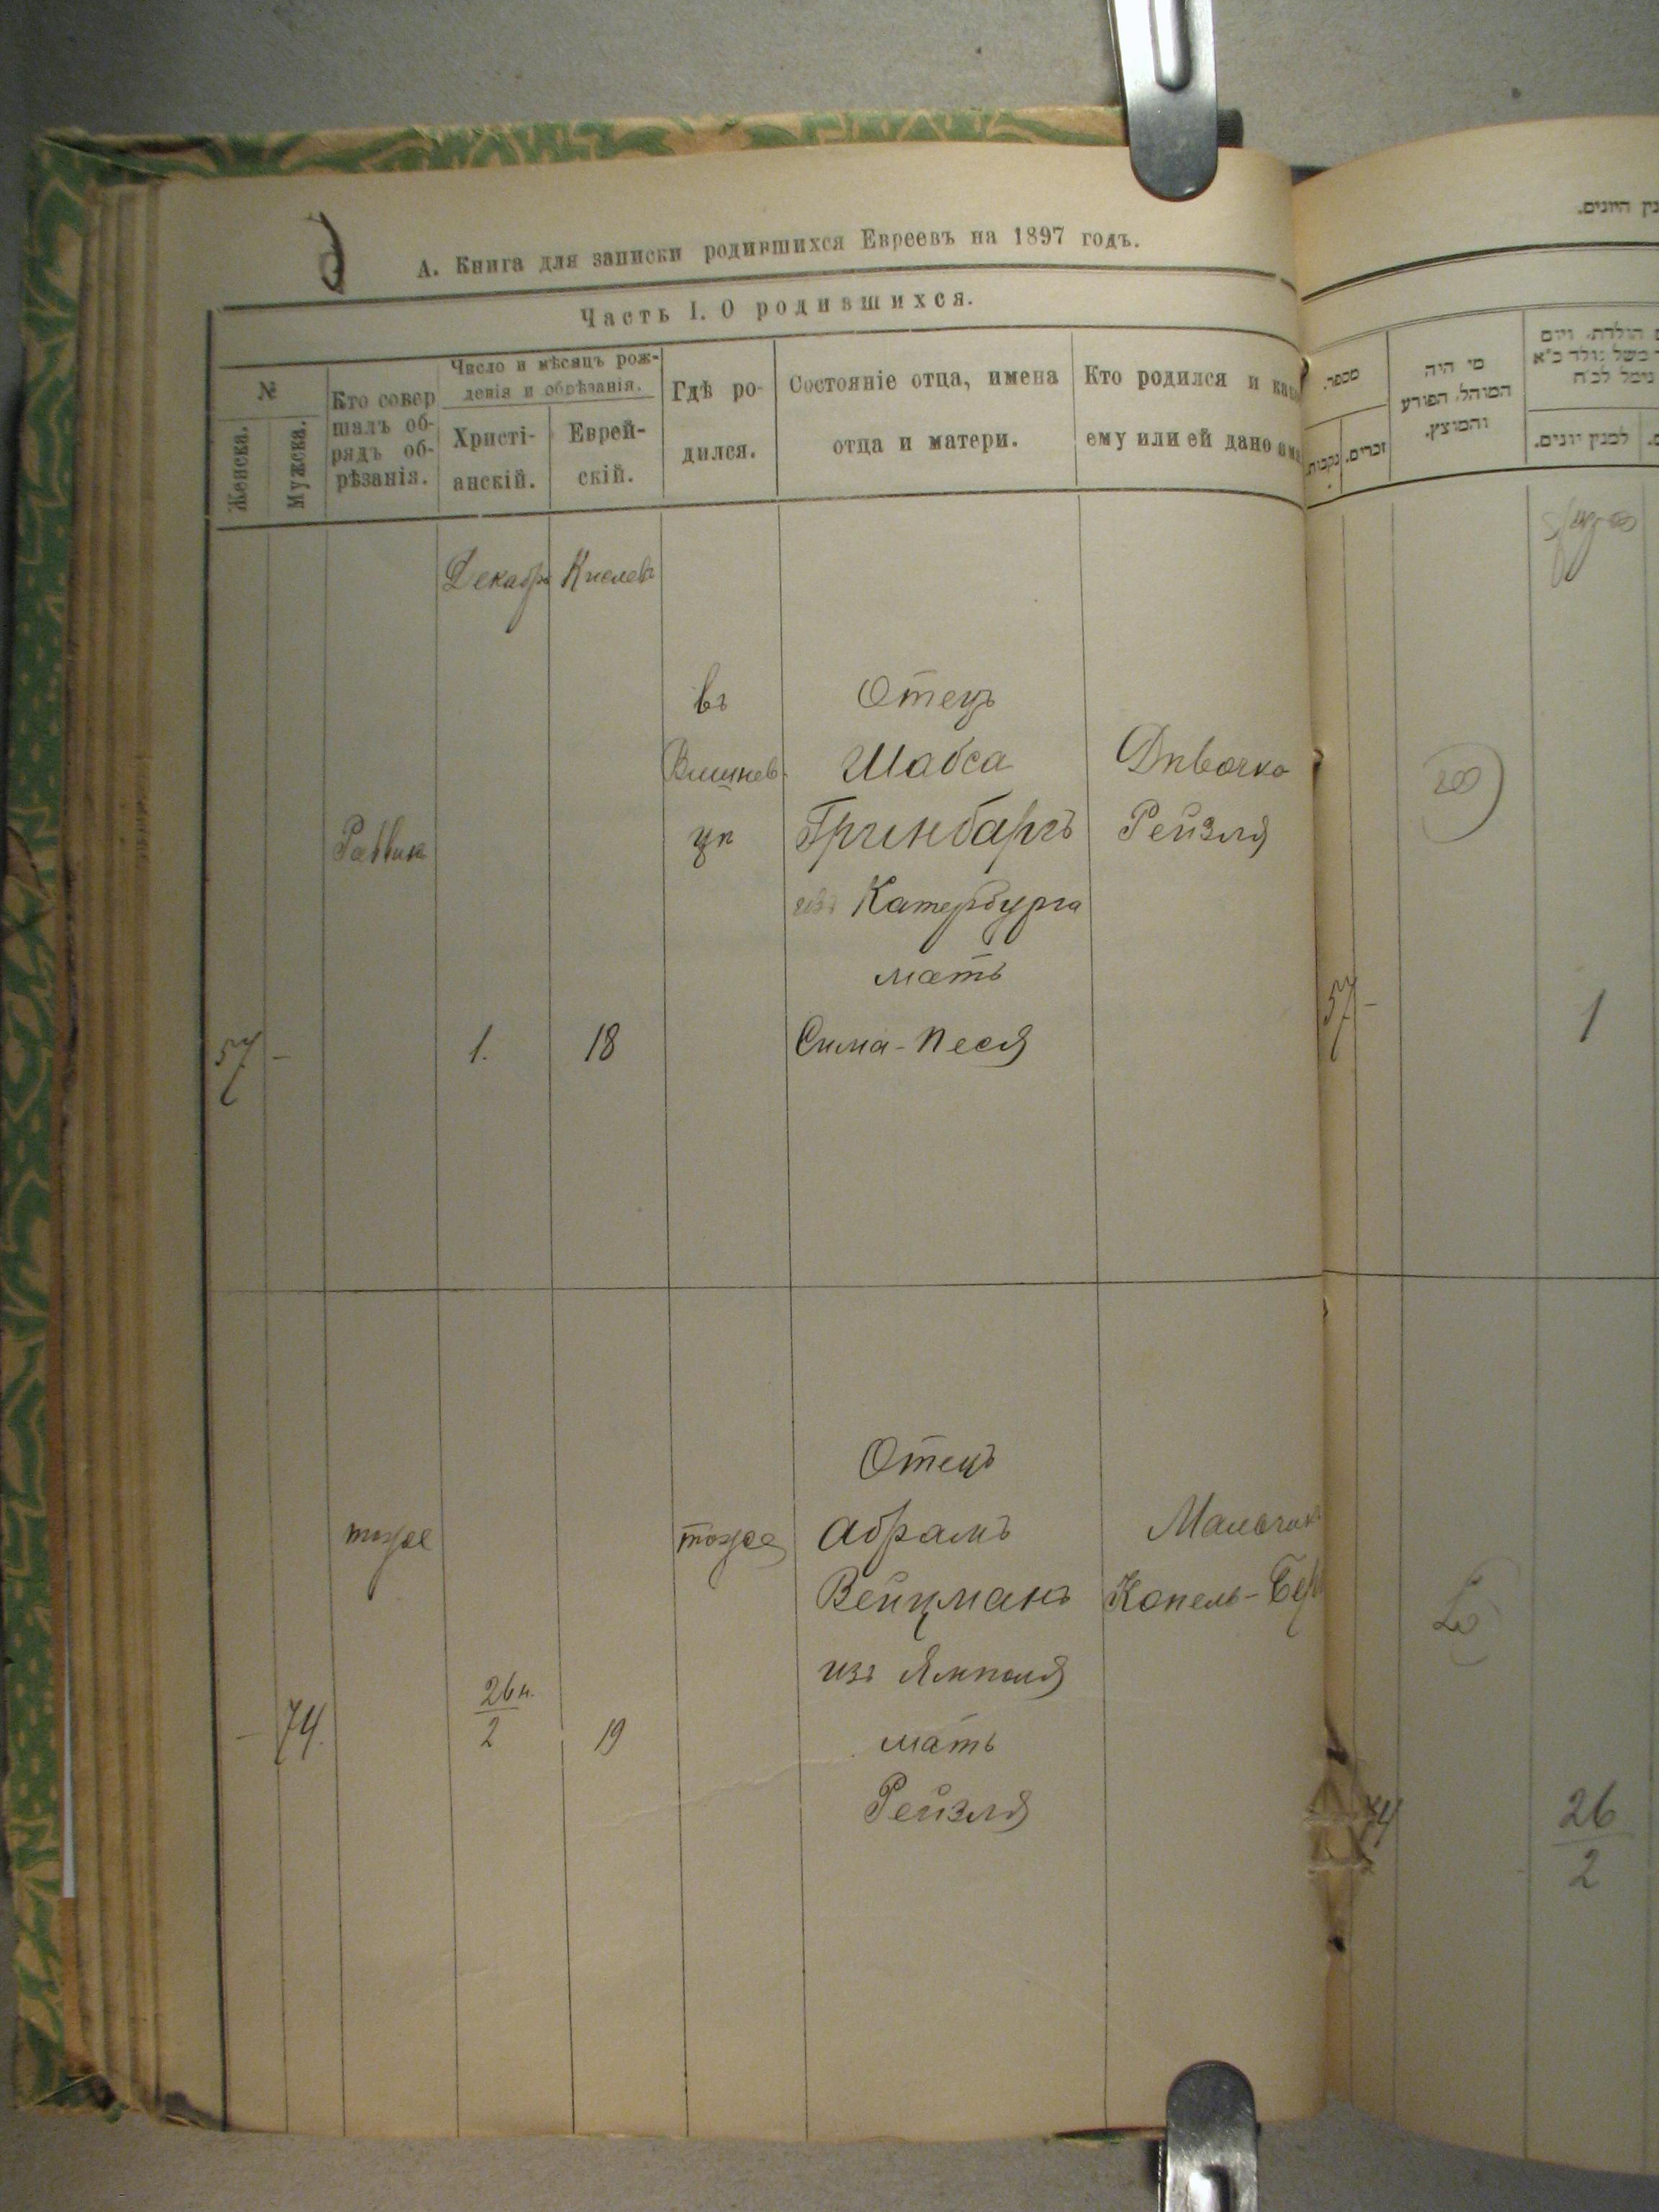 А. Книга для записки родившихся Евреевъ на 1897 годъ.
Часть I. О родившихся.
№
Женска.
Мужска.
Кто совер
шалъ об-
рядъ об-
рѣзанія.
Число и мѣсяцъ рож-
денія и обрѣзанія.
Христі-
анскій.
Еврей-
скій.
Гдѣ ро-
дился.
Состояніе отца, имена
отца и матери.
Кто родился и како
ему или ей дано имя
Декабрь Кислевъ
57 -
Раввинъ
1.
18
въ
Вишнев-
цѣ
Отецъ
Шабса
Гринбаргъ
изъ Катербурга
мать
Сима-Песя
Дѣвочка
Рейзля
- 74.
тоже
26 н.
2
19
тоже
Отецъ
Абрамъ
Вейцманъ
изъ Ямполя
мать
Рейзля
Мальчикъ
Копель-Бер
מין היונים.
מספר.
נקבות.
זכרים.
מי היה
המוהל, הפורע
והמוצץ.
הולדת, ויום
למנין יונים.
57 -
1
74
26
2